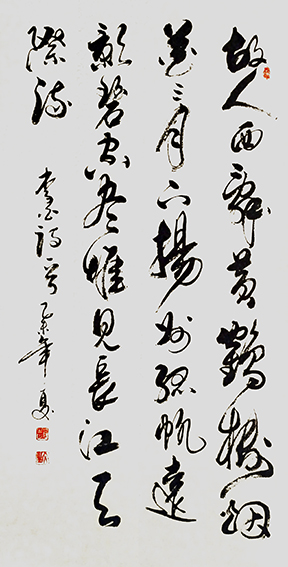 故人西辭黄鶴樓烟
花三月下揚州孤帆遠
影碧空盡惟見長江天
際流
李白詩一首乙未年夏